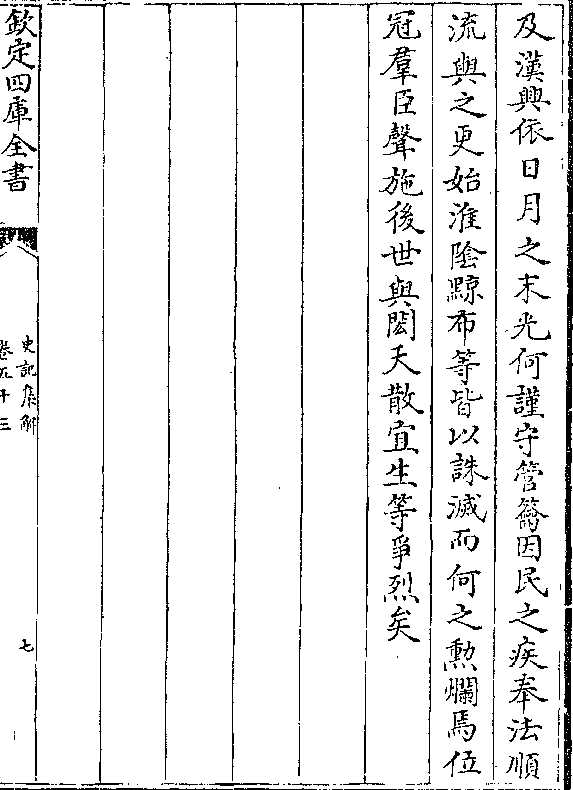 及漢興依日月之末光何謹守管籥因民之疾奉法順
流與之更始淮陰黥布等皆以誅滅而何之勲爛焉位
冠羣臣聲施後世與閎夭散宜生等爭烈矣
欽定四庫全書
史記集解
卷五十三
七